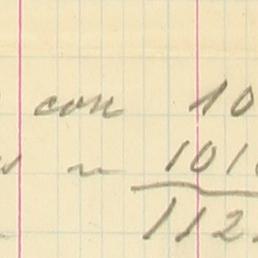 con 10
" 101
112